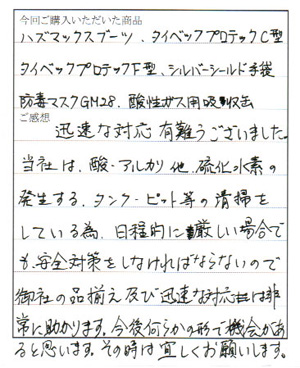 今回ご購入いただいた商品
ハズマックスブーツ、タイベックプロテックC型
タイベックプロテックF型、シルバーシールド手袋
防毒マスクGM28、酸性ガス用吸収缶
ご感想
迅速な対応 有難うございました。
当社は、酸・アルカリ他、硫化水素の
発生する、タンク・ピット等の清掃を
している為、日程的に厳しい場合で
も、安全対策をしなければならないので
御社の品揃え及び迅速な対応は非
常に助かります。今後何らかの形で機会があ
ると思います。その時は宜しくお願いします。